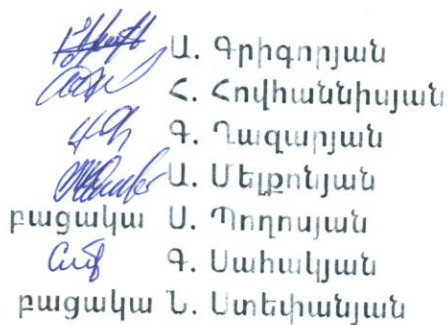 Ա. Գրիգորյան
Հ. Հովհաննիսյան
Գ. Ղազարյան
Ա. Մելքոնյան
բացակա Ս. Պողոսյան
Գ. Սահակյան
բացակա Ն. Ստեփանյան